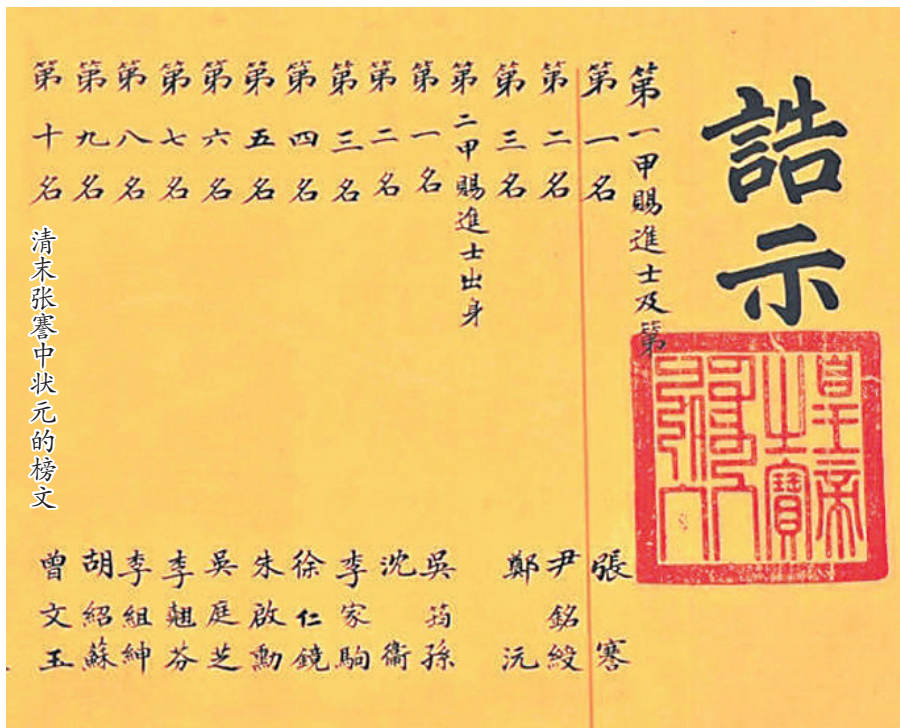 誥示
皇帝之寶
第一甲賜進士及第
第一名 張謇
第二名 尹銘綬
第三名 鄭沅
第二甲賜進士出身
第一名 吳筠孫
第二名 沈衛
第三名 李家駒
第四名 徐仁鏡
第五名 朱啟勳
第六名 吳庭芝
第七名 李翹芬
第八名 李組紳
第九名 胡紹蘇
第十名 曾文玉
清末张謇中状元的榜文